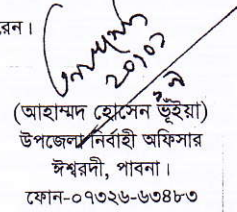 রেন।
২০.০১
(আহাম্মদ হোসেন ভূঁইয়া)
উপজেলা নির্বাহী অফিসার
ঈশ্বরদী, পাবনা।
ফোন-০৭৩২৬-৬৩৪৮৩